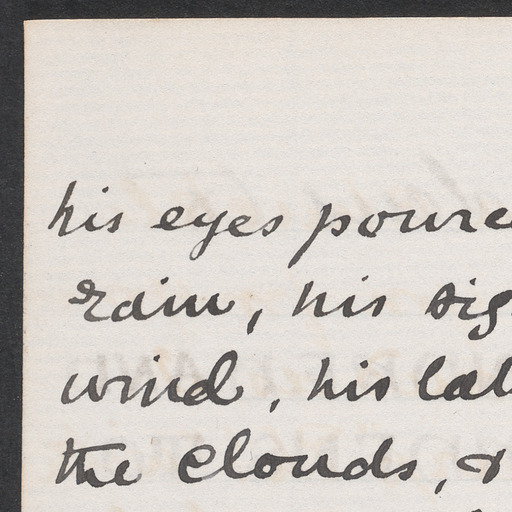 his eyes poure
rain, his sig
wind, his lab
the clouds, &